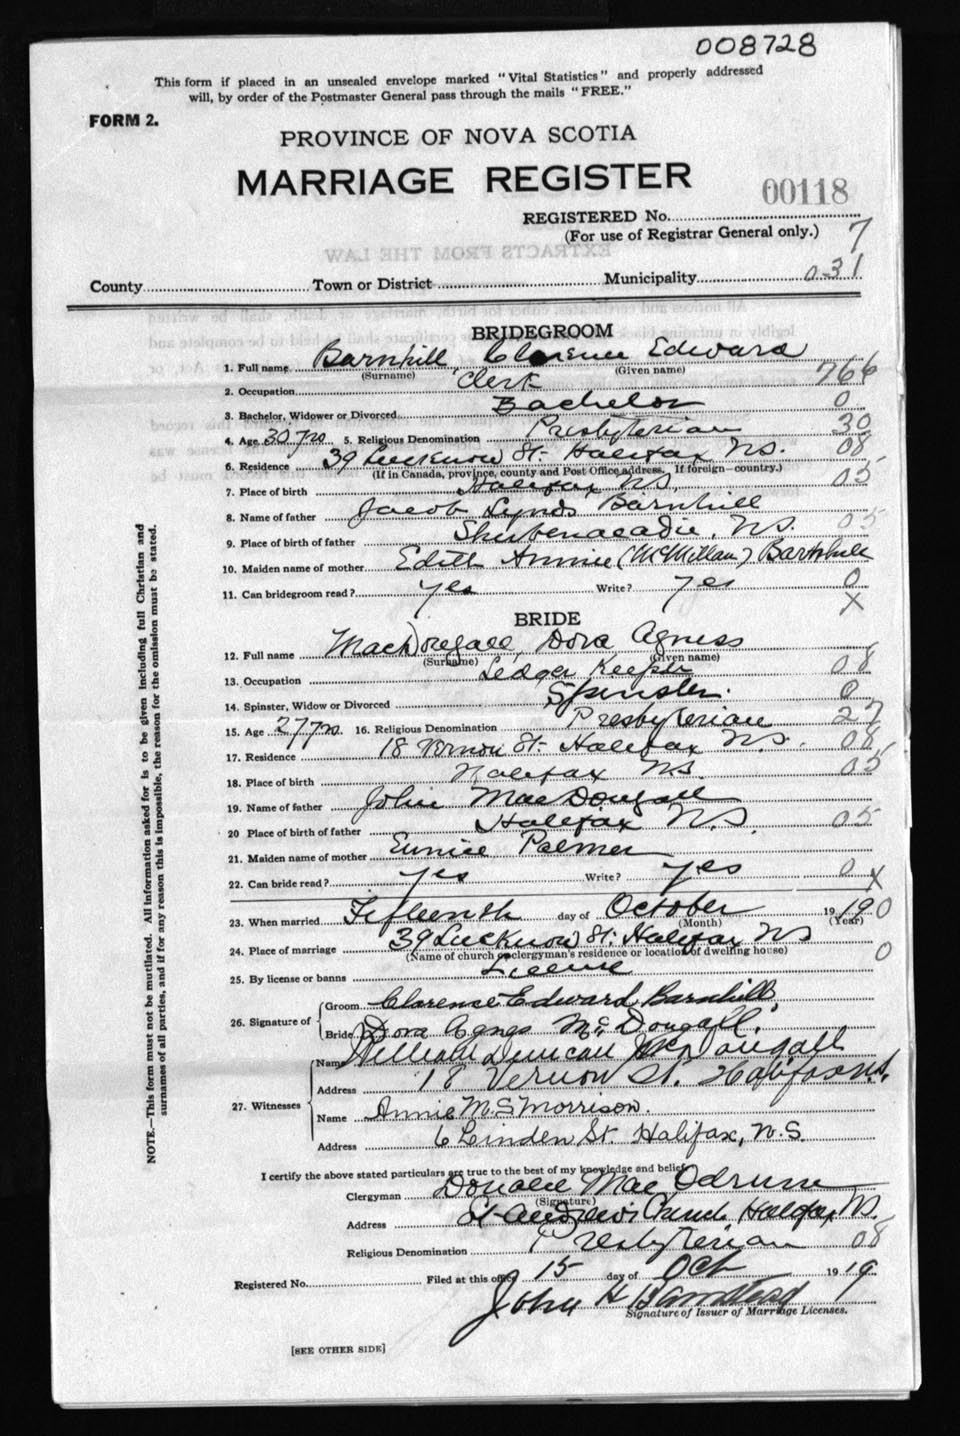 008728
This form if placed in an unsealed envelope marked "Vital Statistics" and properly addressed
will, by order of the Postmaster General pass through the mails "FREE."
FORM 2.
PROVINCE OF NOVA SCOTIA
MARRIAGE REGISTER
00118
REGISTERED No.
(For use of Registrar General only.) 7
County Town or District Municipality 031
BRIDEGROOM
1. Full name Barnhill, Clarence Edward
(Surname) (Given name)
2. Occupation Clerk 766
3. Bachelor, Widower or Divorced Bachelor 0
4. Age 30 yrs 5. Religious Denomination Presbyterian 30
6. Residence 39 Lucknow St. Halifax N.S. 08
(If in Canada, province, county and Post Office address. If foreign—country.)
7. Place of birth Halifax N.S. 05
8. Name of father Jacob Lynds Barnhill
9. Place of birth of father Shubenacadie, N.S. 05
10. Maiden name of mother Edith Annie (McMillan) Barnhill
11. Can bridegroom read? yes Write? yes 0
X
BRIDE
12. Full name MacDougall, Dora Agness
(Surname) (Given name)
13. Occupation Ledger Keeper 08
14. Spinster, Widow or Divorced Spinster. 0
15. Age 27 yrs. 16. Religious Denomination Presbyterian 27
17. Residence 18 Vernon St. Halifax N.S. 08
18. Place of birth Halifax N.S. 05
19. Name of father John MacDougall
20 Place of birth of father Halifax N.S. 05
21. Maiden name of mother Eunice Palmer
22. Can bride read? yes Write? yes 0 X
23. When married Fifteenth day of October 19 19 0
(Month) (Year)
24. Place of marriage 39 Lucknow St. Halifax N.S. 0
(Name of church or clergyman's residence or location of dwelling house)
25. By license or banns License
26. Signature of
Groom Clarence Edward Barnhill
Bride Dora Agnes McDougall.
27. Witnesses
Name William Duncan McDougall
Address 18 Vernon St. Halifax N.S.
Name Annie M. S. Morrison.
Address 6 Linden St Halifax, N.S.
I certify the above stated particulars are true to the best of my knowledge and belief.
Clergyman Donald Mac Odrum
(Signature)
Address St Andrews Church Halifax N.S.
Religious Denomination Presbyterian 08
Registered No. Filed at this office 15 day of Oct 19 19
John H
Signature of Issuer of Marriage Licenses.
[SEE OTHER SIDE]
NOTE.—This form must not be mutilated. All information asked for is to be given including full Christian and
surnames of all parties, and if for any reason this is impossible, the reason for the omission must be stated.